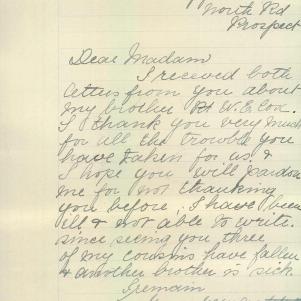 North Rd
Prospect
Dear Madam
I receved both
letters from you about
my brother Pt W. E. Cox.
I thank you very much
for all the trowble you
have taken for us &
I hope you will pardon
me for not thanking
you before, I have been
ill & not able to write.
since seeing you three
of my cousins have fallen
& another brother is sick
I remain